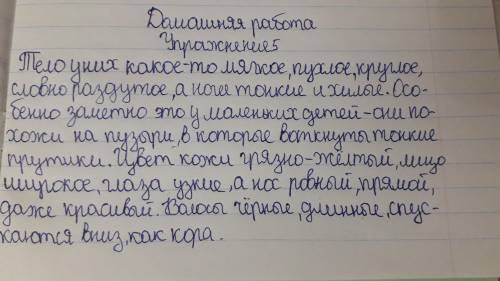 Домашняя работа
Упражнение 5
Тело у них какое-то мягкое, пухлое, круглое,
словно раздутое, а ноги тонкие и хилые. Осо-
бенно заметно это у маленьких детей - они по-
хожи на пузыри, в которые воткнуты тонкие
прутики. Цвет кожи грязно-жёлтый, лицо
широкое, глаза узкие, а нос ровный, прямой,
даже красивый. Волосы чёрные, длинные, спус-
каются вниз, как кора.